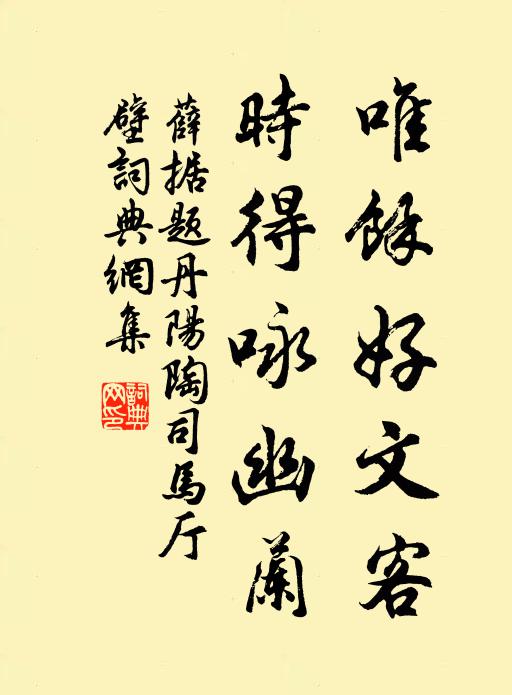 唯餘好文客
時得咏幽蘭
薛据题丹陽陶司馬厅
壁詞典網集
詞典网印